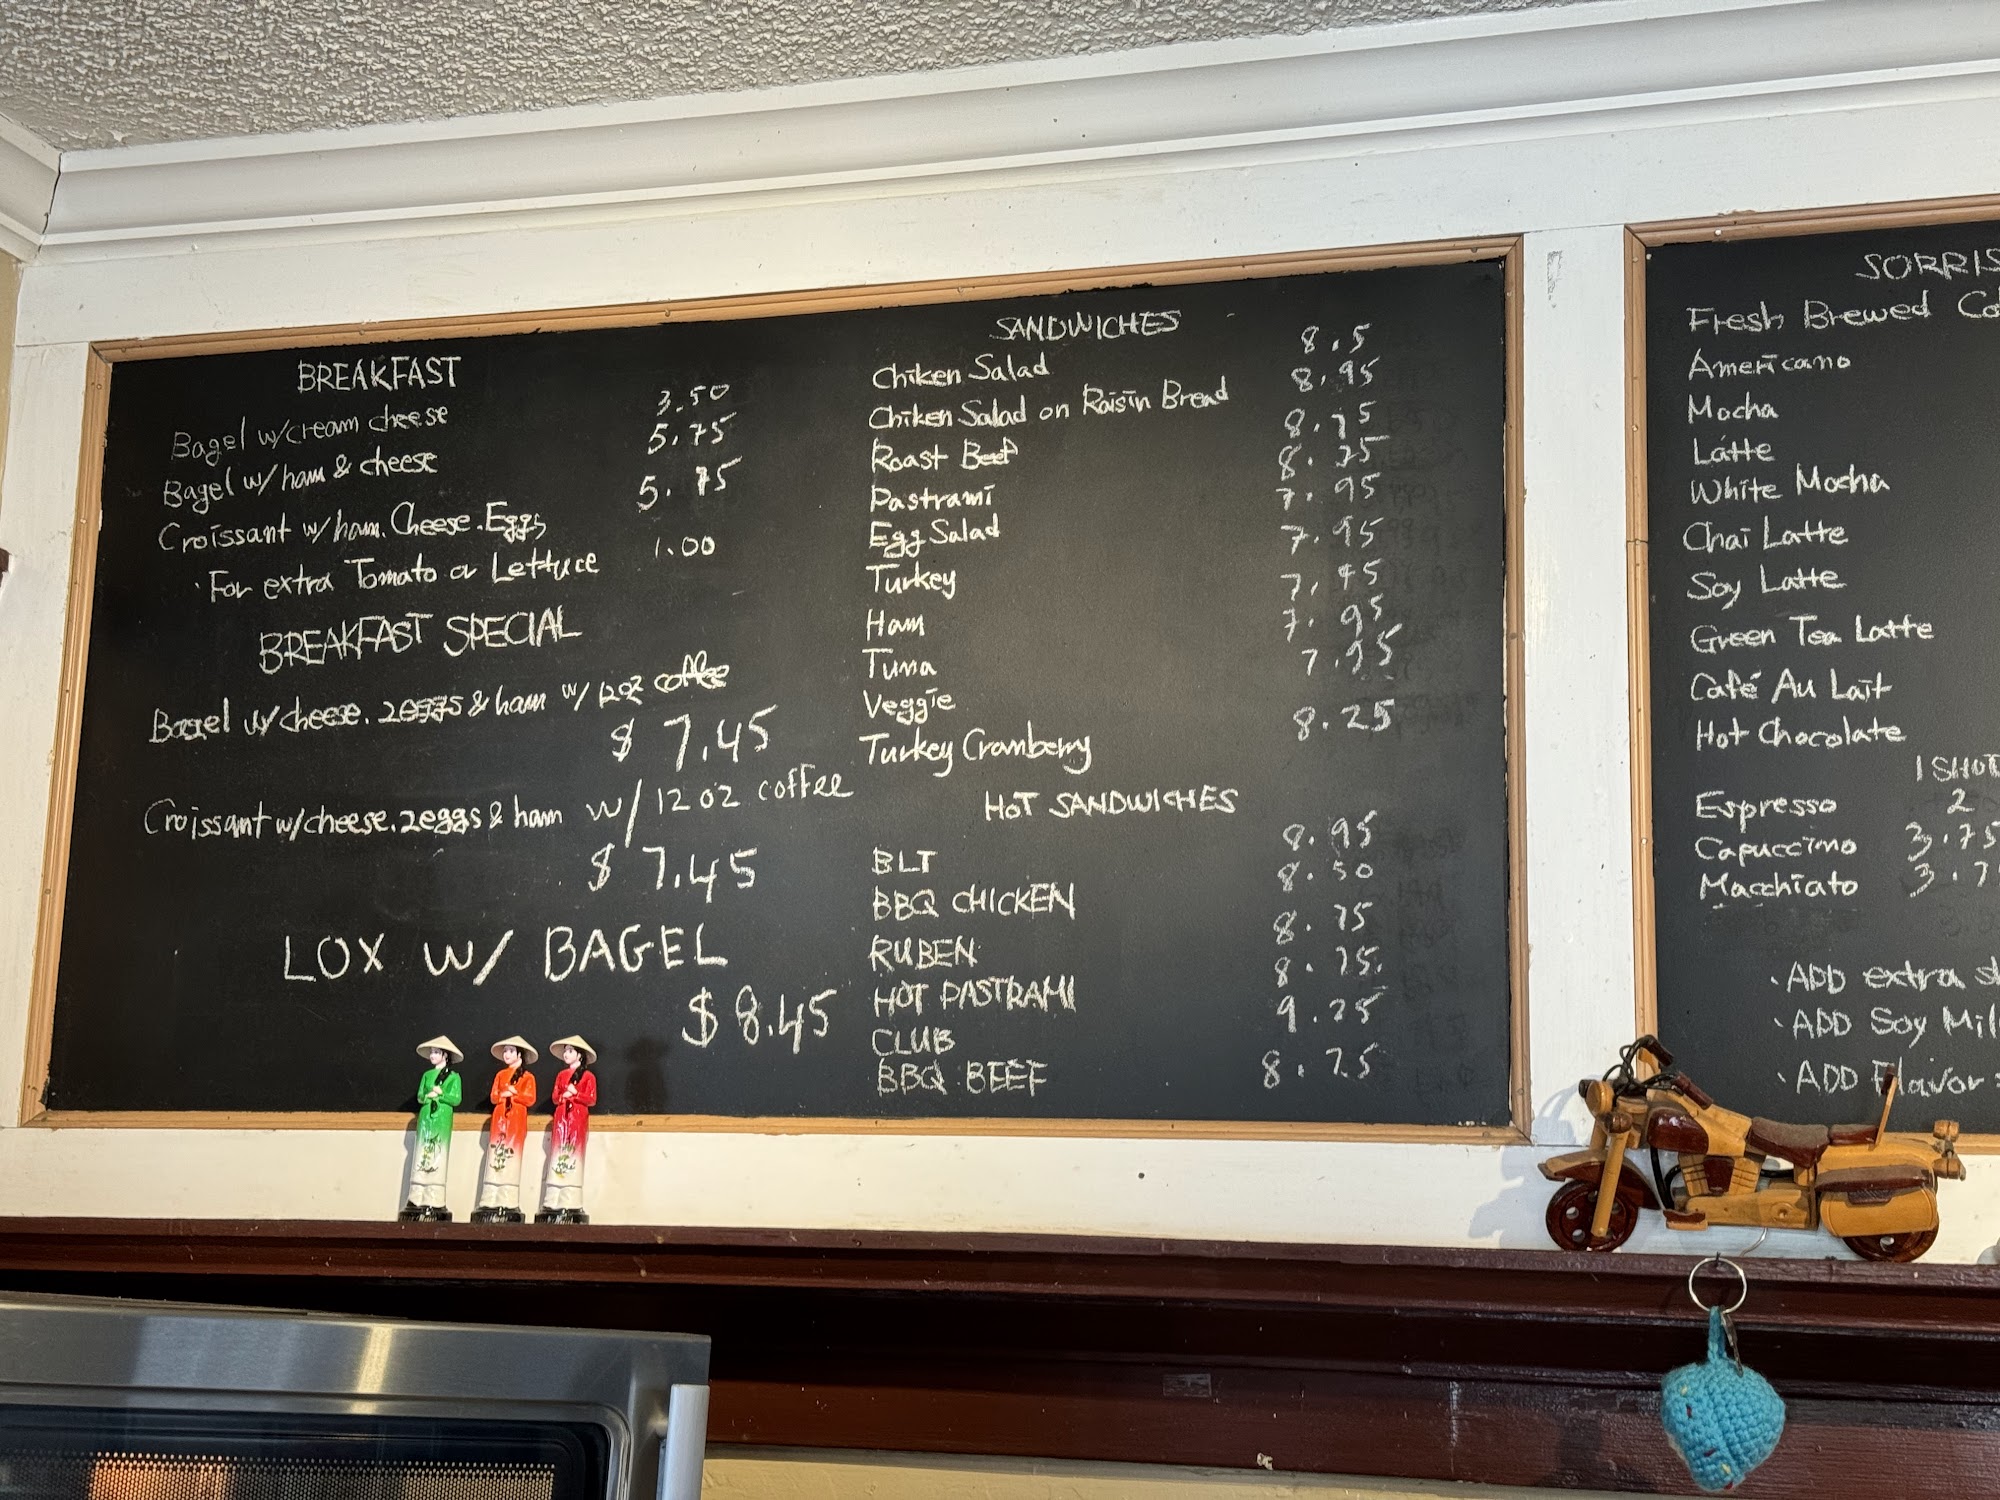 BREAKFAST
Bagel w/cream cheese 3.50
Bagel w/ ham & cheese 5.75
Croissant w/ham. Cheese. Eggs 5.75
· For extra Tomato or Lettuce 1.00
BREAKFAST SPECIAL
Bagel w/ cheese. 2eggs & ham w/ 12oz coffee
$ 7.45
Croissant w/cheese. 2eggs & ham w/ 12 oz coffee
$ 7.45
LOX W/ BAGEL
$ 8.45
SANDWICHES
Chiken Salad 8.5
Chiken Salad on Raisin Bread 8.95
Roast Beef 8.75
Pastrami
Egg Salad 7.95
Turkey 7.95
Ham
Tuna 7.95
Veggie 7.95
Turkey Cranberry 8.25
HOT SANDWICHES
BLT 8.95
BBQ CHICKEN 8.50
RUBEN
HOT PASTRAMI
CLUB 9.25
BBQ BEEF
Fresh Brewed
Americano
Mocha
Látte
White Mocha
Chai Latte
Soy Latte
Green Tea Latte
Café Au Lait
Hot Chocolate
1 SHOT
Espresso 2
Capuccino 3.75
Macchiato
· ADD extra
· ADD Soy
· ADD Flavor